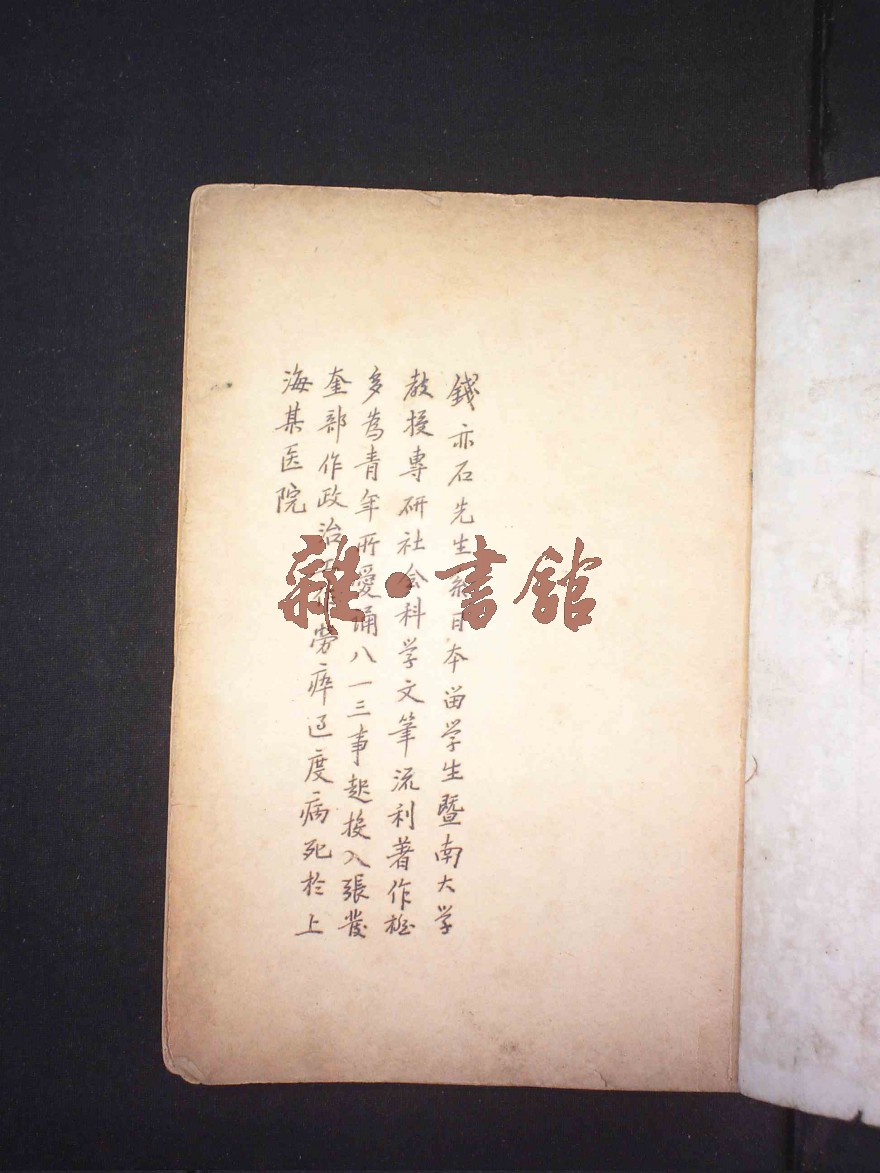 錢亦石先生係日本畄学生暨南大学
教授專研社会科学文筆流利著作極
多為青年所愛誦八一三事起投入張發
奎部作政治工作劳瘁过度病死於上
海某医院
雜·書館